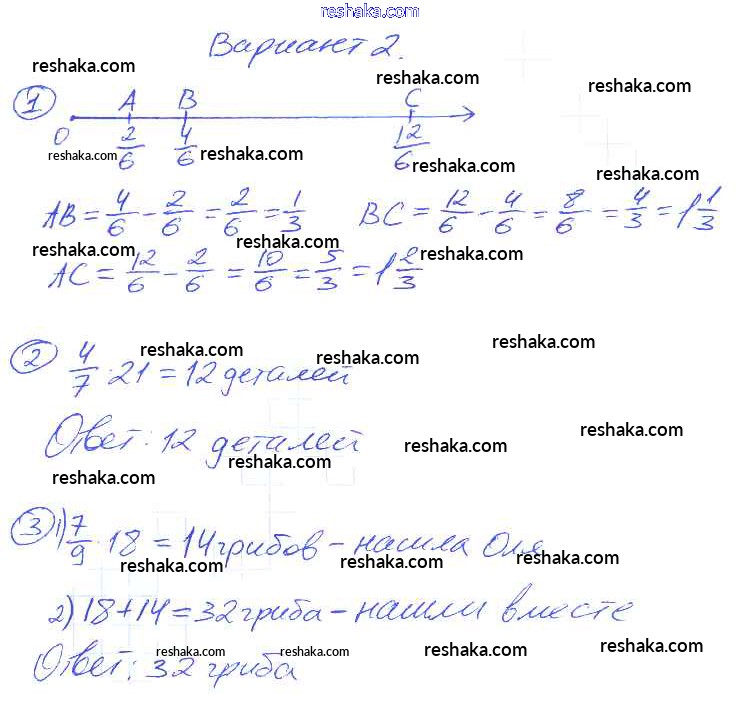 reshaka.com
Вариант 2.
reshaka.com reshaka.com reshaka.com
1 A B C
0 2/6 4/6 12/6
reshaka.com reshaka.com reshaka.com reshaka.com
AB = 4/6 - 2/6 = 2/6 = 1/3 BC = 12/6 - 4/6 = 8/6 = 4/3 = 1 1/3
reshaka.com reshaka.com reshaka.com
AC = 12/6 - 2/6 = 10/6 = 5/3 = 1 2/3
reshaka.com reshaka.com reshaka.com
2 4/7 · 21 = 12 деталей
Ответ: 12 деталей
reshaka.com reshaka.com reshaka.com reshaka.com
3 1) 7/9 · 18 = 14 грибов - нашла Оля
reshaka.com reshaka.com reshaka.com
2) 18 + 14 = 32 гриба - нашли вместе
Ответ: 32 гриба
reshaka.com reshaka.com reshaka.com reshaka.com